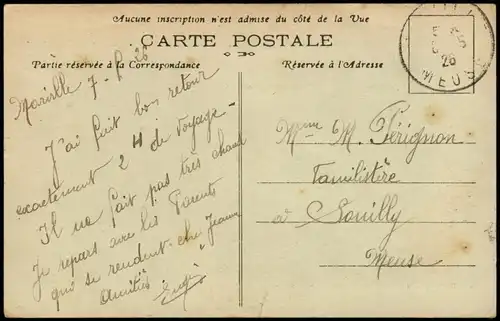 Aucune inscription n'est admise du côté de la Vue
CARTE POSTALE
Partie réservée à la Correspondance
Réservée à l'Adresse
26
MEUSE
Marville 7 - 8 26
J'ai fait bon retour
exactement 24 H de voyage -
Il ne fait pas très chaud
Je repars avec les Parents
qui se rendent chez Jeanne
Amitiés
Mme M. Pérignon
Familistère
à Souilly
Meuse